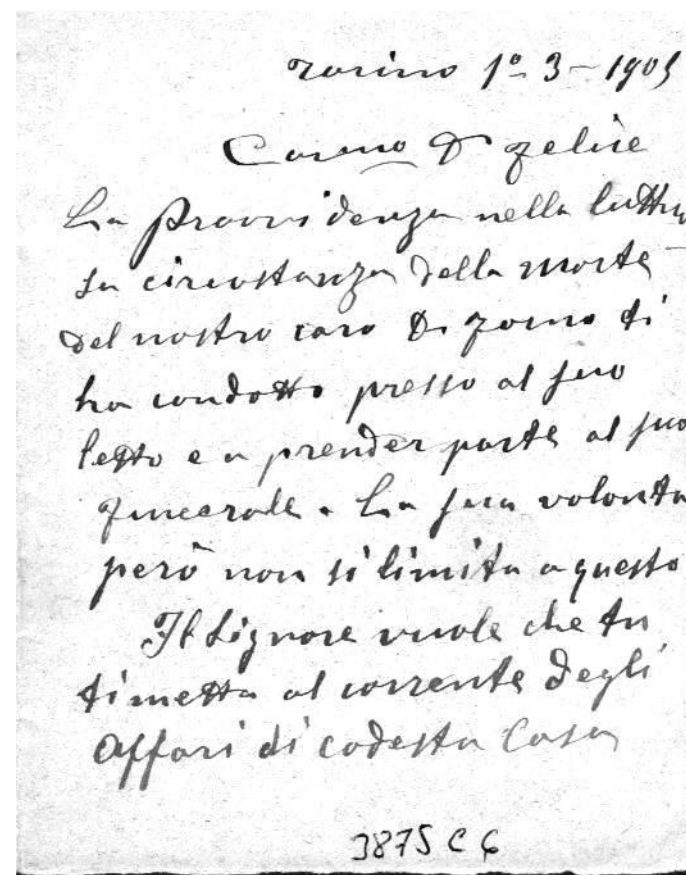 Torino 1º-3-1905
Carmo D Felice
La Provvidenza nella luttuo
sa circostanza della morte
del nostro caro D. ti
ha condotto presso al suo
letto e a prender parte al suo
funerale. La sua volontà
però non si limita a questo
Il Signore vuole che tu
ti metta al corrente degli
Affari di codesta Casa
3875 C 6